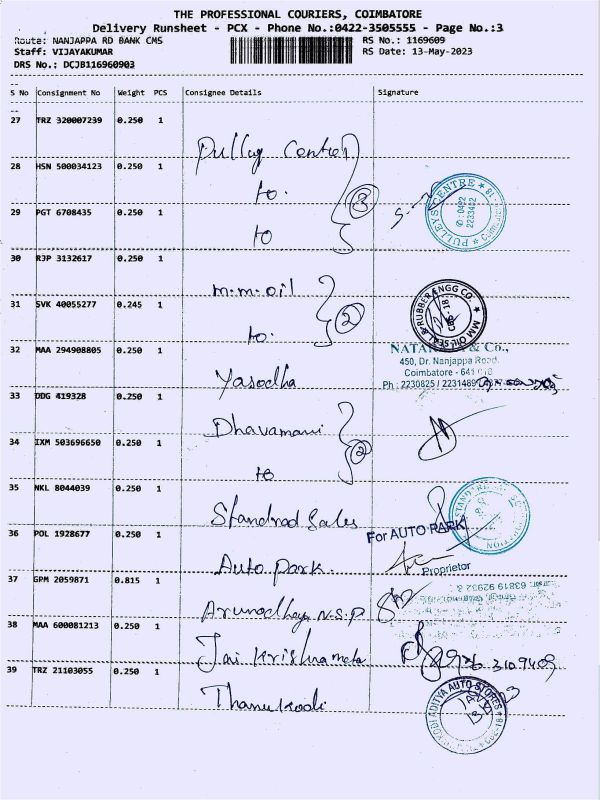 THE PROFESSIONAL COURIERS, COIMBATORE
Delivery Runsheet - PCX - Phone No.:0422-3505555 - Page No.:3
Route: NANJAPPA RD BANK CMS RS No.: 1169609
Staff: VIJAYAKUMAR RS Date: 13-May-2023
DRS No.: DCJB116960903
S No Consignment No Weight PCS Consignee Details Signature
27 TRZ 320007239 0.250 1
Pulley Centre
28 HSN 500034123 0.250 1
to
3
PULLEYS CENTRE
0422
2233452
29 PGT 6708435 0.250 1
to
30 RJP 3132617 0.250 1
m.m.oil
31 SVK 40055277 0.245 1
2
MM OIL SEAL & RUBBER ENGG CO.
to
32 MAA 294908805 0.250 1
& Co.,
450, Dr. Nanjappa Road,
Coimbatore - 641 018
Ph : 2230825 / 2231489
Yasodha
33 DDG 419328 0.250 1
Dhavamani
34 IXM 503696650 0.250 1
2
to
35 NKL 8044039 0.250 1
Standrod Sales
36 POL 1928677 0.250 1
For AUTO PARK
Auto park.
Proprietor
37 GPM 2059871 0.815 1
63819 92932
N.S.P
38 MAA 600081213 0.250 1
Jai Krishna
39 TRZ 21103055 0.250 1
KODI ADITYA AUTO STORES